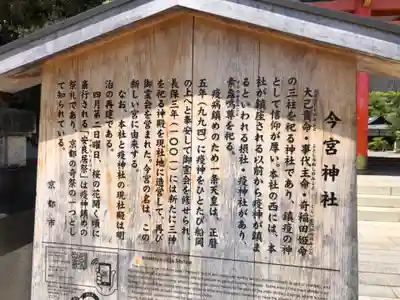 今宮神社
大己貴命・事代主命・奇稲田姫命
の三社を祀る神社であり、鎮疫の神
として信仰が厚い。本社の西には、本
社が鎮座される以前から疫神が鎮ま
るといわれる摂社・疫神社があり、
素盞鳴尊を祀る。
疫病鎮めのため一条天皇は、正暦
五年(九九四)に疫神をひとたび船岡
の上へと奉安して御霊会を修せられ、
長保三年(一〇〇一)には新たに三神
を祀る神殿を現社地に造営して、再び
御霊会を営まれた。今宮の名は、この
新しい宮に由来する。
なお、本社と疫神社の現社殿は明
治の再建である。
四月第二日曜日、桜の花開く頃に
斎行される「安良居祭」は疫神鎮めの
祭礼であり、京都の奇祭の一つとし
て知られている。
京都市